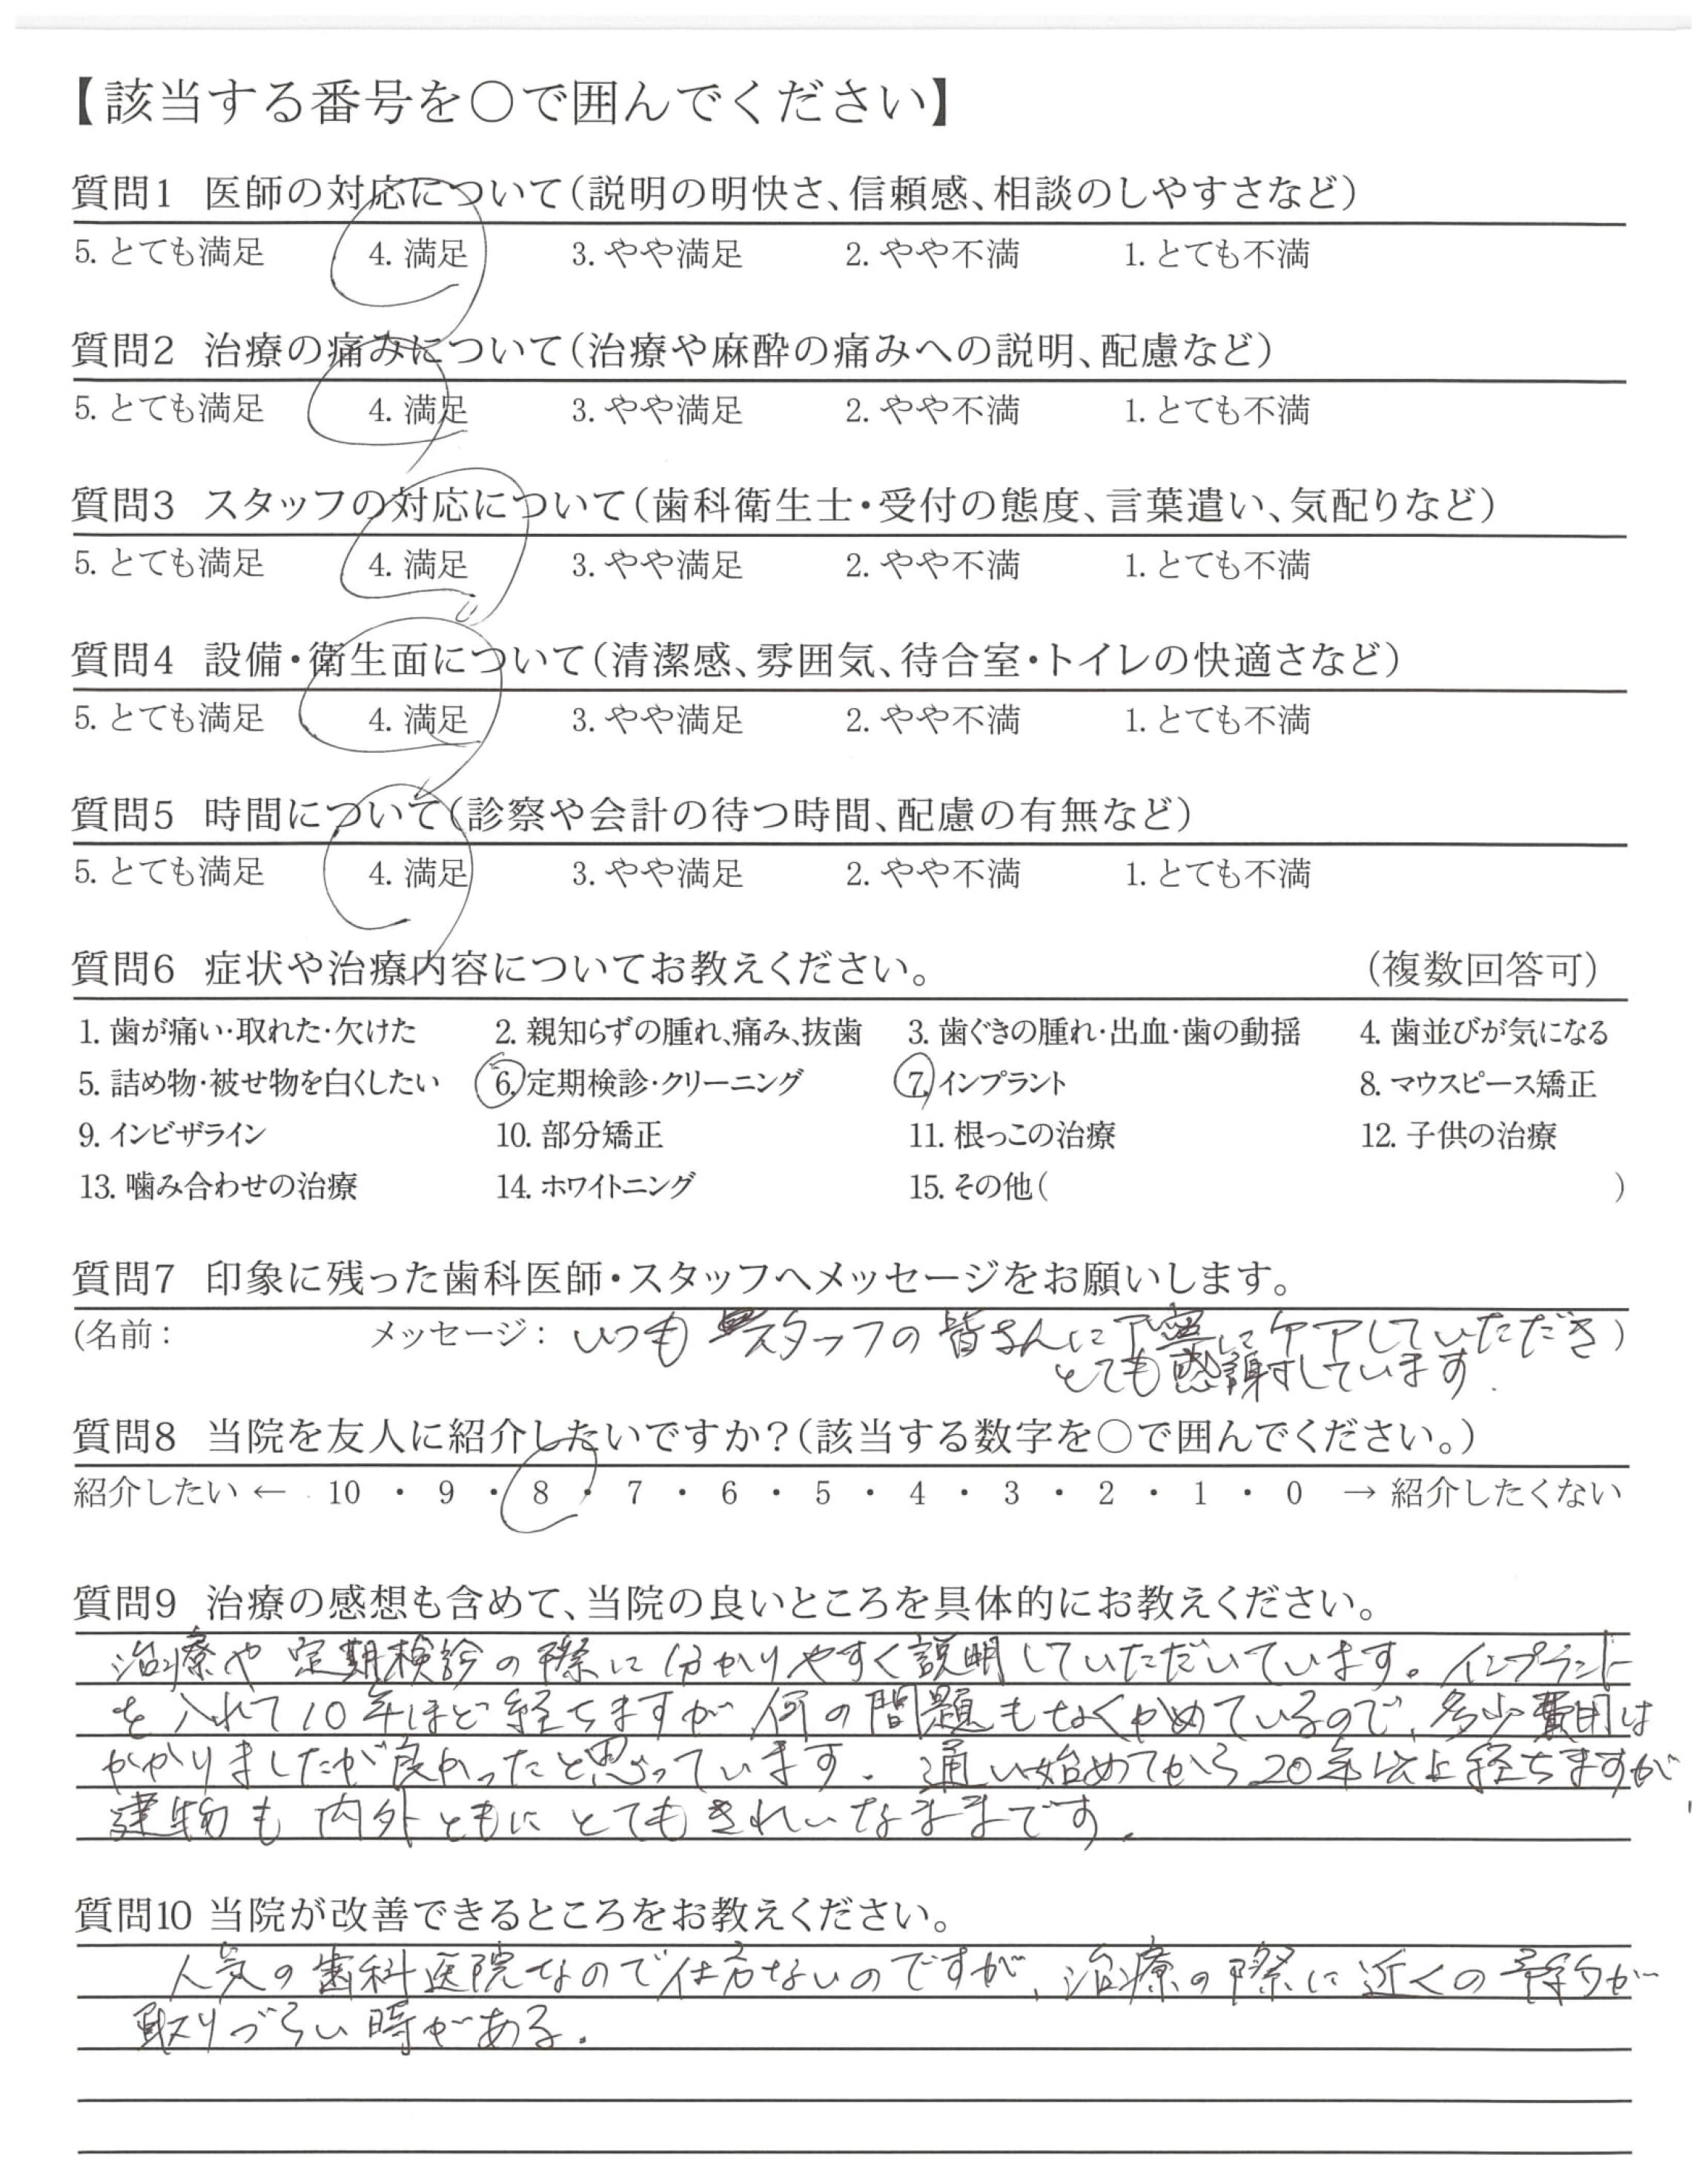 【該当する番号を○で囲んでください】
質問1 医師の対応について(説明の明快さ、信頼感、相談のしやすさなど)
5. とても満足 4. 満足 3. やや満足 2. やや不満 1. とても不満
質問2 治療の痛みについて(治療や麻酔の痛みへの説明、配慮など)
5. とても満足 4. 満足 3. やや満足 2. やや不満 1. とても不満
質問3 スタッフの対応について(歯科衛生士・受付の態度、言葉遣い、気配りなど)
5. とても満足 4. 満足 3. やや満足 2. やや不満 1. とても不満
質問4 設備・衛生面について(清潔感、雰囲気、待合室・トイレの快適さなど)
5. とても満足 4. 満足 3. やや満足 2. やや不満 1. とても不満
質問5 時間について(診察や会計の待つ時間、配慮の有無など)
5. とても満足 4. 満足 3. やや満足 2. やや不満 1. とても不満
質問6 症状や治療内容についてお教えください。 (複数回答可)
1. 歯が痛い・取れた・欠けた 2. 親知らずの腫れ、痛み、抜歯 3. 歯ぐきの腫れ・出血・歯の動揺 4. 歯並びが気になる
5. 詰め物・被せ物を白くしたい 6. 定期検診・クリーニング 7. インプラント 8. マウスピース矯正
9. インビザライン 10. 部分矯正 11. 根っこの治療 12. 子供の治療
13. 噛み合わせの治療 14. ホワイトニング 15. その他( )
質問7 印象に残った歯科医師・スタッフへメッセージをお願いします。
(名前: メッセージ: いつもスタッフの皆さんに丁寧にケアしていただき)
とても感謝しています.
質問8 当院を友人に紹介したいですか?(該当する数字を○で囲んでください。)
紹介したい ← 10 ・ 9 ・ 8 ・ 7 ・ 6 ・ 5 ・ 4 ・ 3 ・ 2 ・ 1 ・ 0 → 紹介したくない
質問9 治療の感想も含めて、当院の良いところを具体的にお教えください。
治療や定期検診の際に分かりやすく説明していただいています。インプラント
を入れて10年ほど経ちますが、何の問題もなくかめているので、多少費用は
かかりましたが良かったと思っています. 通い始めてから20年以上経ちますが、
建物も内外ともにとてもきれいなままです.
質問10 当院が改善できるところをお教えください。
人気の歯科医院なので仕方ないのですが、治療の際に近くの予約が
取りづらい時がある.